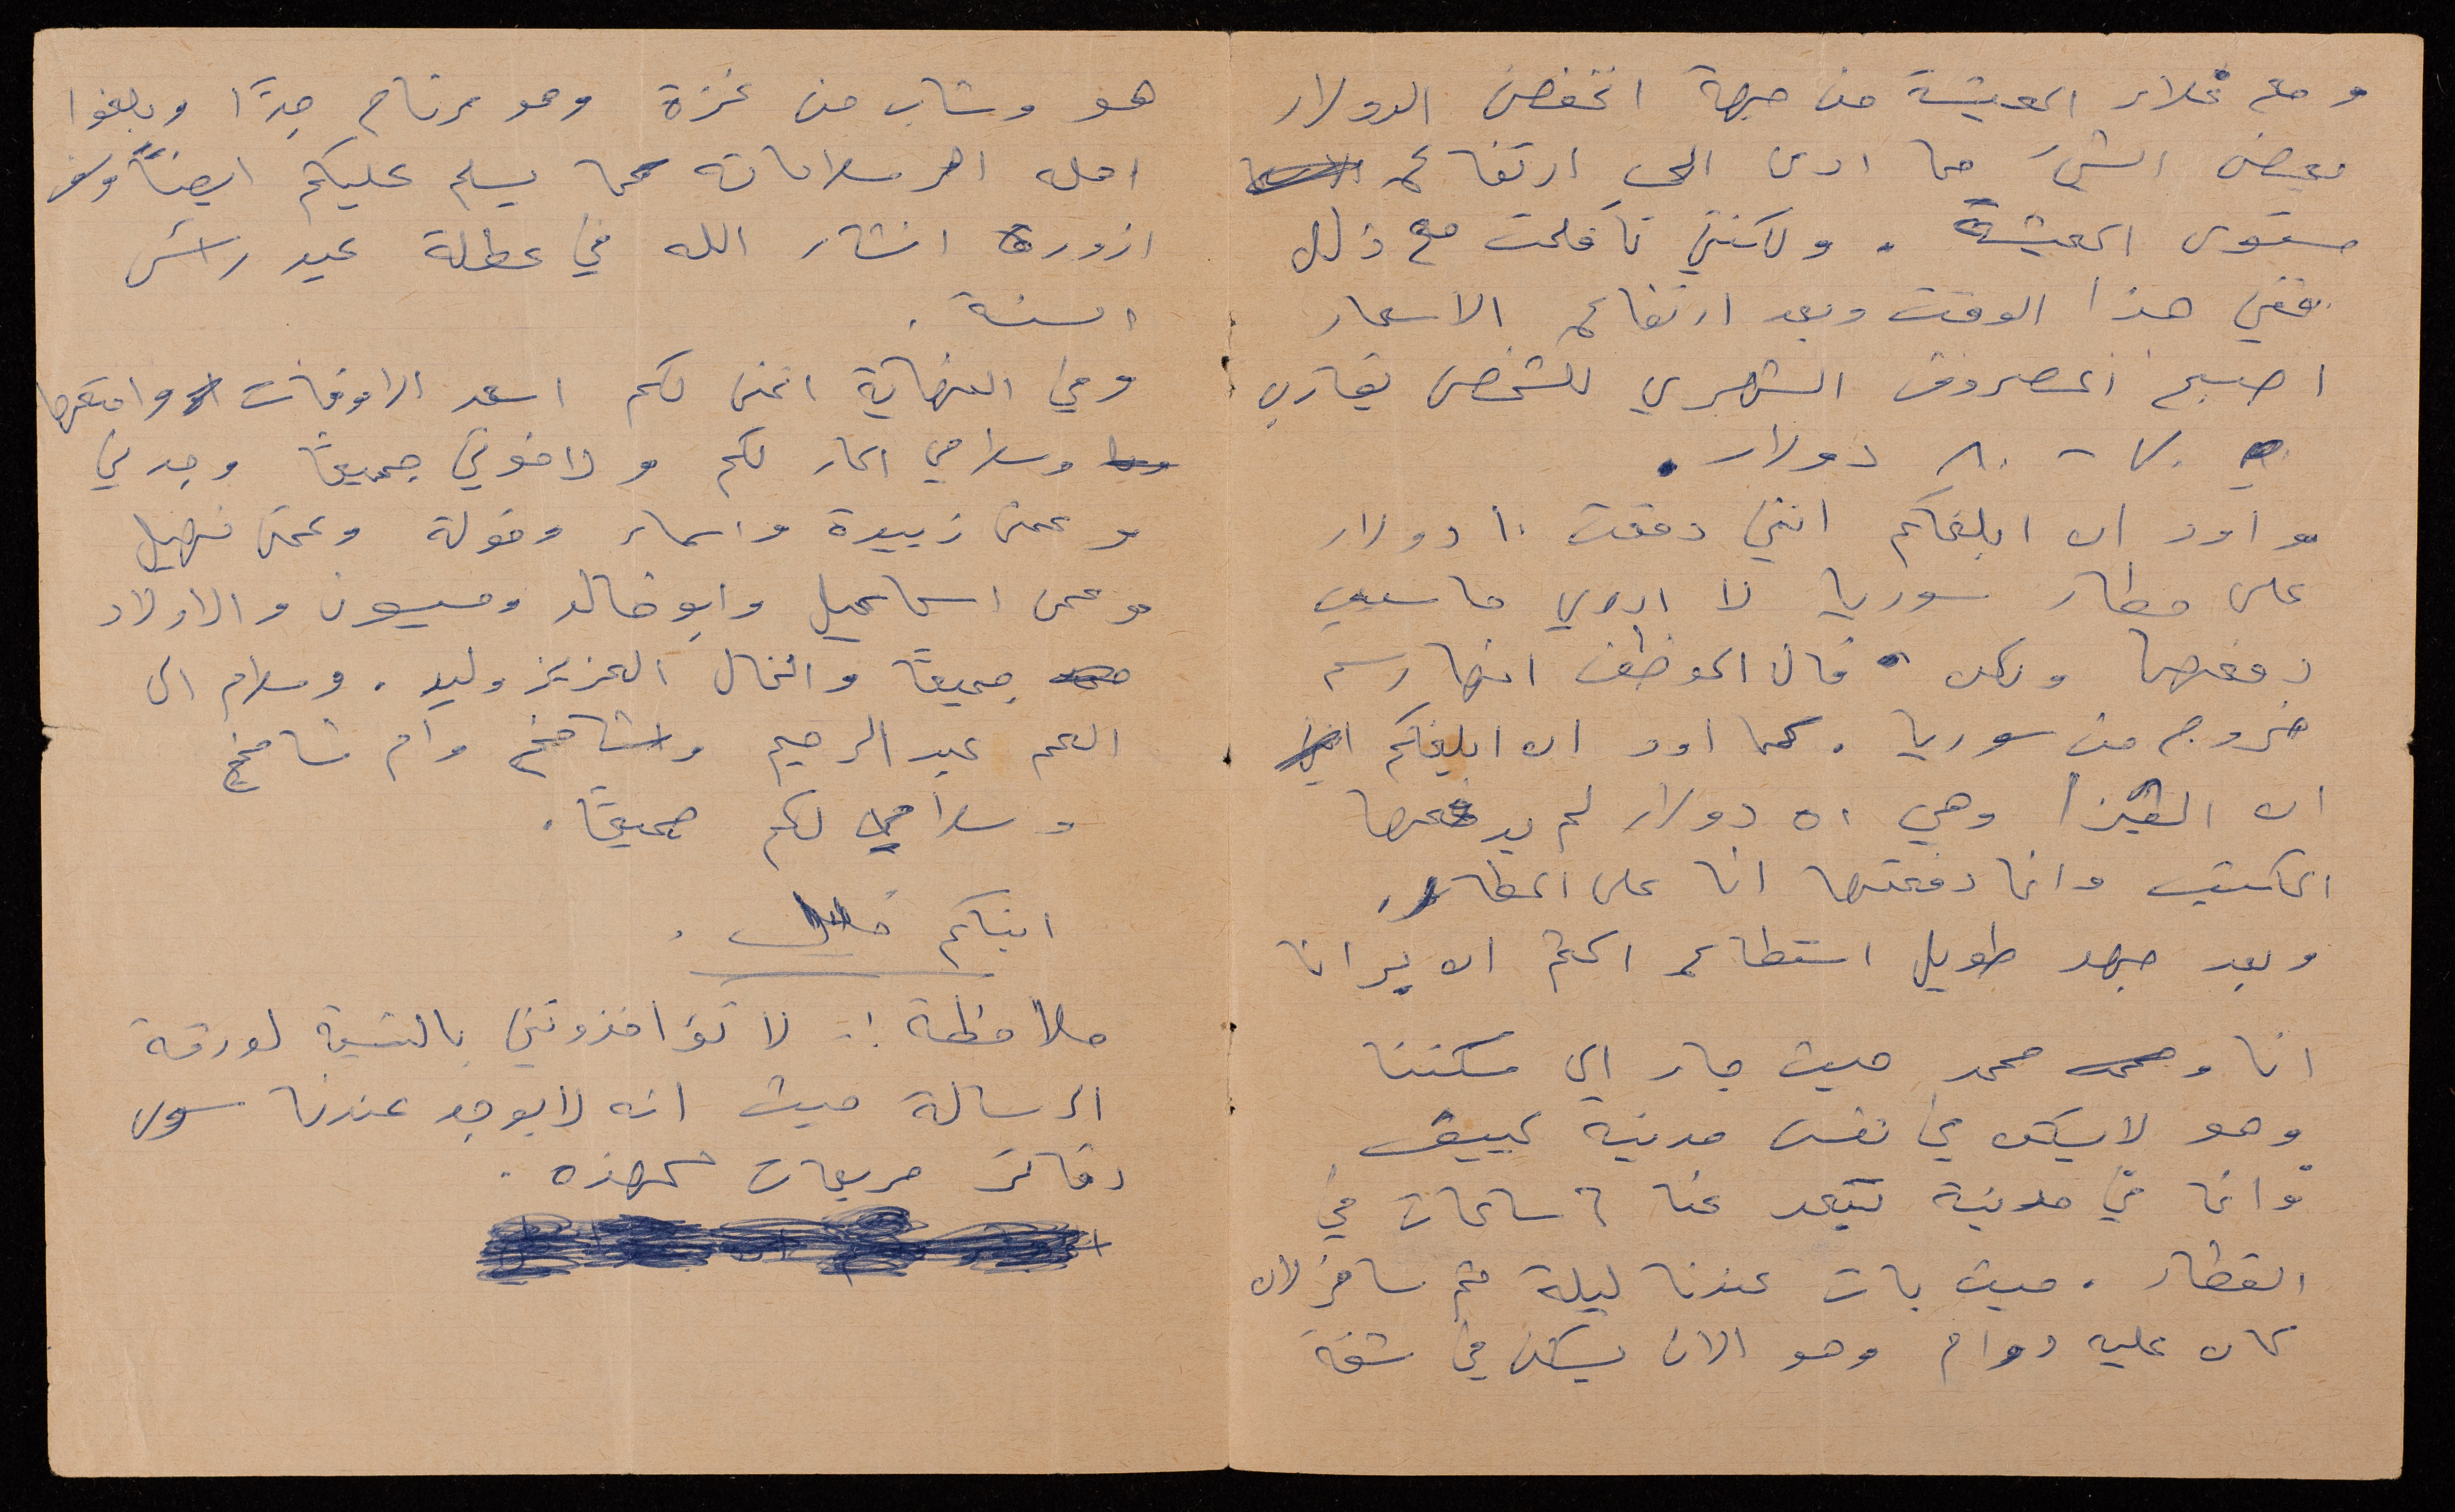 ومع غلاء المعيشة من جهة انخفض الدولار
بعض الشيء مما ادى الى ارتفاع
مستوى المعيشة . ولكنني تأقلمت مع ذلك
ففي هذا الوقت وبعد ارتفاع الاسعار
اصبح المصروف الشهري للشخص يقارب
٧٠ - ٨٠ دولار .
واود ان ابلغكم انني دفعت ١٠ دولار
على مطار سوريا لا ادري ما سبب
دفعها ولكن قال الموظف انها رسم
خروج من سوريا . كما اود ان ابلغكم
ان الفيزا وهي ٥١ دولار لم يدفعها
المكتب وانما دفعتها انا على المطار .
وبعد جهد طويل استطاع الختم ان يرانا
انا ومحمد حيث جاء الى مسكننا
وهو لا يسكن في نفس مدينة كييف
وانما في مدينة تبعد عنا ٦ ساعات في
القطار . حيث بات عندنا ليلة ثم سافر لان
كان عليه دوام وهو الان يسكن في شقة
هو وشاب من غزة وهو مرتاح جدًا وبلغوا
اهله احر سلاماته كما يسلم عليكم ايضاً وسوف
ازوره انشاء الله في عطلة عيد رأس
السنة .
وفي النهاية اتمنى لكم اسعد الاوقات وامتعها
وسلامي الحار لكم ولاخوتي جميعاً وجدتي
وعمتي زبيدة واسماء وخولة وعمتي نهيل
وعمي اسماعيل وابو خالد وميسون والاولاد
جميعاً والخال العزيز وليد . وسلام الى
العم عبد الرحيم وشامخ وام شامخ
وسلامي لكم جميعًا .
ابنكم
ملاحظة :- لا تؤاخذونني بالنسبة لورقة
الرسالة حيث انه لا يوجد عندنا سوى
دفاتر مربعات كهذه .